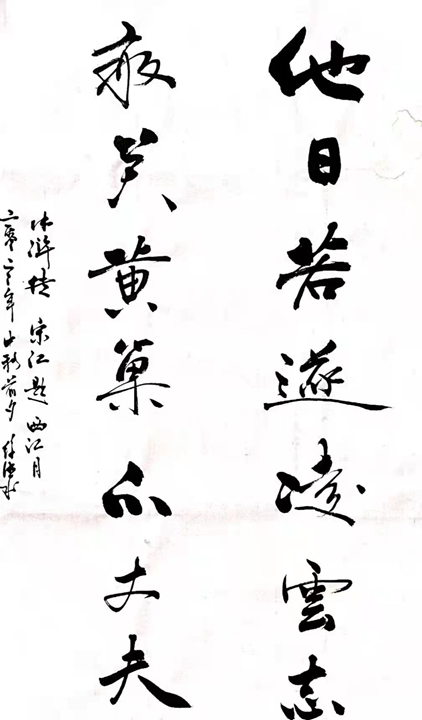 他日若遂凌雲志
敢笑黄巢不丈夫
水滸传 宋江题 西江月
二零二二年 中秋前夕